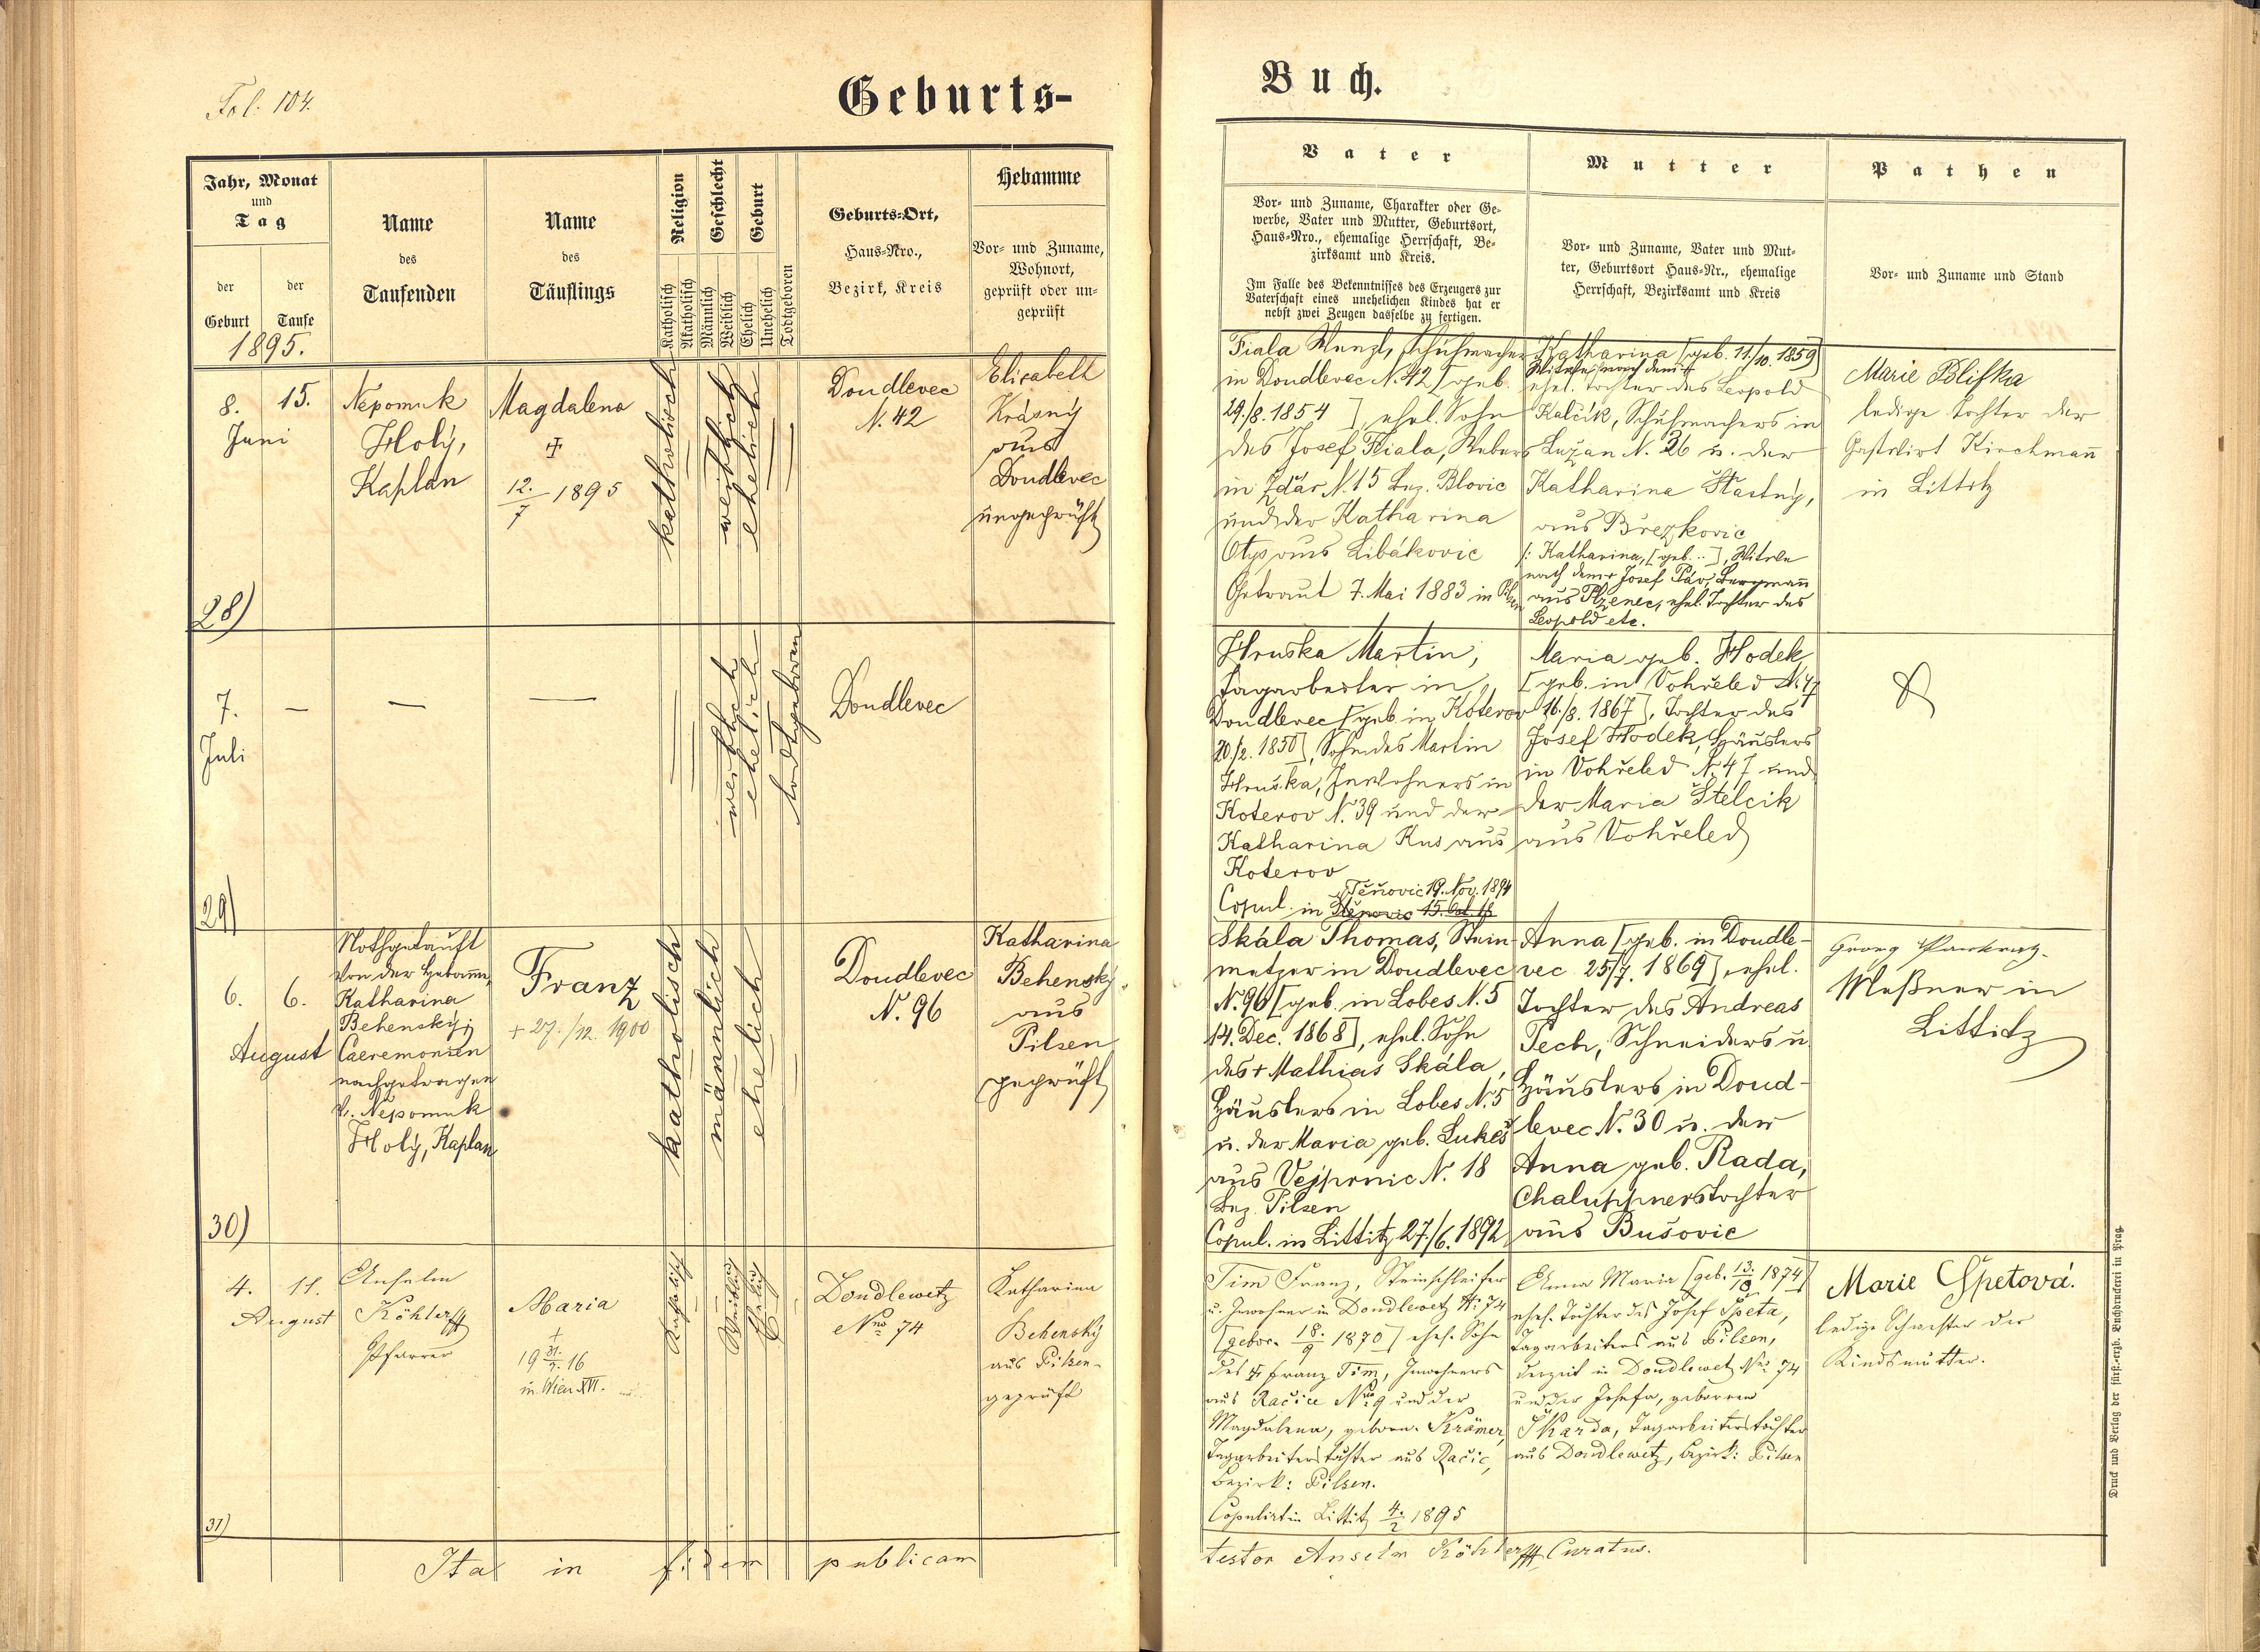 Fol. 104.
Geburts-
Jahr, Monat
und
Tag
der
Geburt
der
Taufe
1895.
Name
des
Taufenden
Name
des
Täuflings
Religion
Katholisch
Akatholisch
Geschlecht
Männlich
Weiblich
Geburt
Ehelich
Unehelich
Todtgeboren
Geburts-Ort,
Haus-Nro.,
Bezirk, Kreis
Hebamme
Vor- und Zuname,
Wohnort,
geprüft oder un-
geprüft
8.
Juni
15.
Nepomuk
Holý,
Kaplan
Magdalena
12./7 1895
katholisch
weiblich
ehelich
Doudlevec
N. 42
Elisabeth
Krásný
aus
Doudlevec
ungeprüft
28)
7.
Juli
—
—
—
weiblich
ehelich
todtgeboren
Doudlevec
29)
6.
6.
August
Nothgetauft
von der Hebamme
Katharina
Behenský;
Caeremonien
nachgetragen
v. Nepomuk
Holý, Kaplan
Franz
+ 27./12. 1900
katholisch
männlich
ehelich
Doudlevec
N. 96
Katharina
Behenský
aus
Pilsen
geprüft
30)
4.
11.
August
Anselm
Köhler
Pfarrer
Maria
+
19 31./7. 16
in Wien XVI.
Katholisch
Weiblich
Ehelich
Doudlewetz
Nro 74
Katharina
Behenský
aus Pilsen
geprüft
31)
Ita in fidem publicam
Buch.
Vater
Vor- und Zuname, Charakter oder Ge-
werbe, Vater und Mutter, Geburtsort,
Haus-Nro., ehemalige Herrschaft, Be-
zirksamt und Kreis.
Im Falle des Bekenntnisses des Erzeugers zur
Vaterschaft eines unehelichen Kindes hat er
nebst zwei Zeugen dasselbe zu fertigen.
Mutter
Vor- und Zuname, Vater und Mut-
ter, Geburtsort Haus-Nr., ehemalige
Herrschaft, Bezirksamt und Kreis
Pathen
Vor- und Zuname und Stand
Fiala Wenzl, Schuhmacher
in Doudlevec N. 42 [geb.
29./8. 1854], ehel. Sohn
des Josef Fiala, Webers
in Zdár N. 15 Bez. Blovic
und der Katharina
Otys aus Libákovic
Getraut 7. Mai 1883 in Pilsen
Katharina [geb. 11./10. 1859]
Witwe nach dem +
ehel. Tochter des Leopold
Kalčík, Schuhmachers in
Lužan N. 26 u. der
Katharina Štastný,
aus Březkovic
/: Katharina, [geb. ..], Witwe
nach dem + Josef Páv, Bergmann
aus Plzenec, ehel. Tochter des
Leopold etc.
Marie Bliska
ledige Tochter der
Gastwirt Kirchmann
in Littitz
Hruska Martin,
Tagarbeiter in
Doudlevec [geb. in Koterov
20./2. 1850], Sohn des Martin
Hruška, Inwohners in
Koterov N. 39 und der
Katharina Kus aus
Koterov
Těnovic 19. Nov. 1894
Copul. in Štěnovic 15. Oct. 18
Maria geb. Hodek
[geb. in Vohřeled N. 47
16./8. 1867], Tochter des
Josef Hodek, Häuslers
in Vohřeled N. 47 und
der Maria Štelcik
aus Vohřeled
Skála Thomas, Stein-
metzer in Doudlevec
N. 96 [geb. in Lobes N. 5
14. Dec. 1868], ehel. Sohn
des + Mathias Skála,
Häuslers in Lobes N. 5
u. der Maria geb. Lukeš
aus Vejprnic N. 18
Bez. Pilsen
Copul. in Littitz 27./6. 1892
Anna [geb. in Doudle-
vec 25/7. 1869], ehel.
Tochter des Andreas
Pech, Schneiders u.
Häuslers in Doud-
levec N. 30 u. der
Anna geb. Rada,
Chaluppnerstochter
aus Bušovic
Georg Pankratz
Meßner in
Littitz
Tim Franz, Steinschleifer
u. Inwohner in Doudlewetz N: 74
[gebor. 18./9 1870] ehel. Sohn
des + Franz Tim, Inwohners
aus Račice Nro 9 und der
Magdalena, geboren. Krämer,
Tagarbeiterstochter aus Račic,
Bezirk: Pilsen.
Copulirt in Littitz 4./2 1895
Anna Maria [geb. 13./10 1874]
ehel. Tochter des Josef Špeta,
Tagarbeiters aus Pilsen,
derzeit in Doudlowetz Nro 74
und der Josefa, geborenen
Škarda, Tagarbeiterstochter
aus Doudlewetz, Bezirk: Pilsen
Marie Špetová.
ledige Schwester der
Kindsmutter.
testor Anselm Köhler Curatus.
Druck und Verlag der fürst.-erzb. Buchdruckerei in Prag.